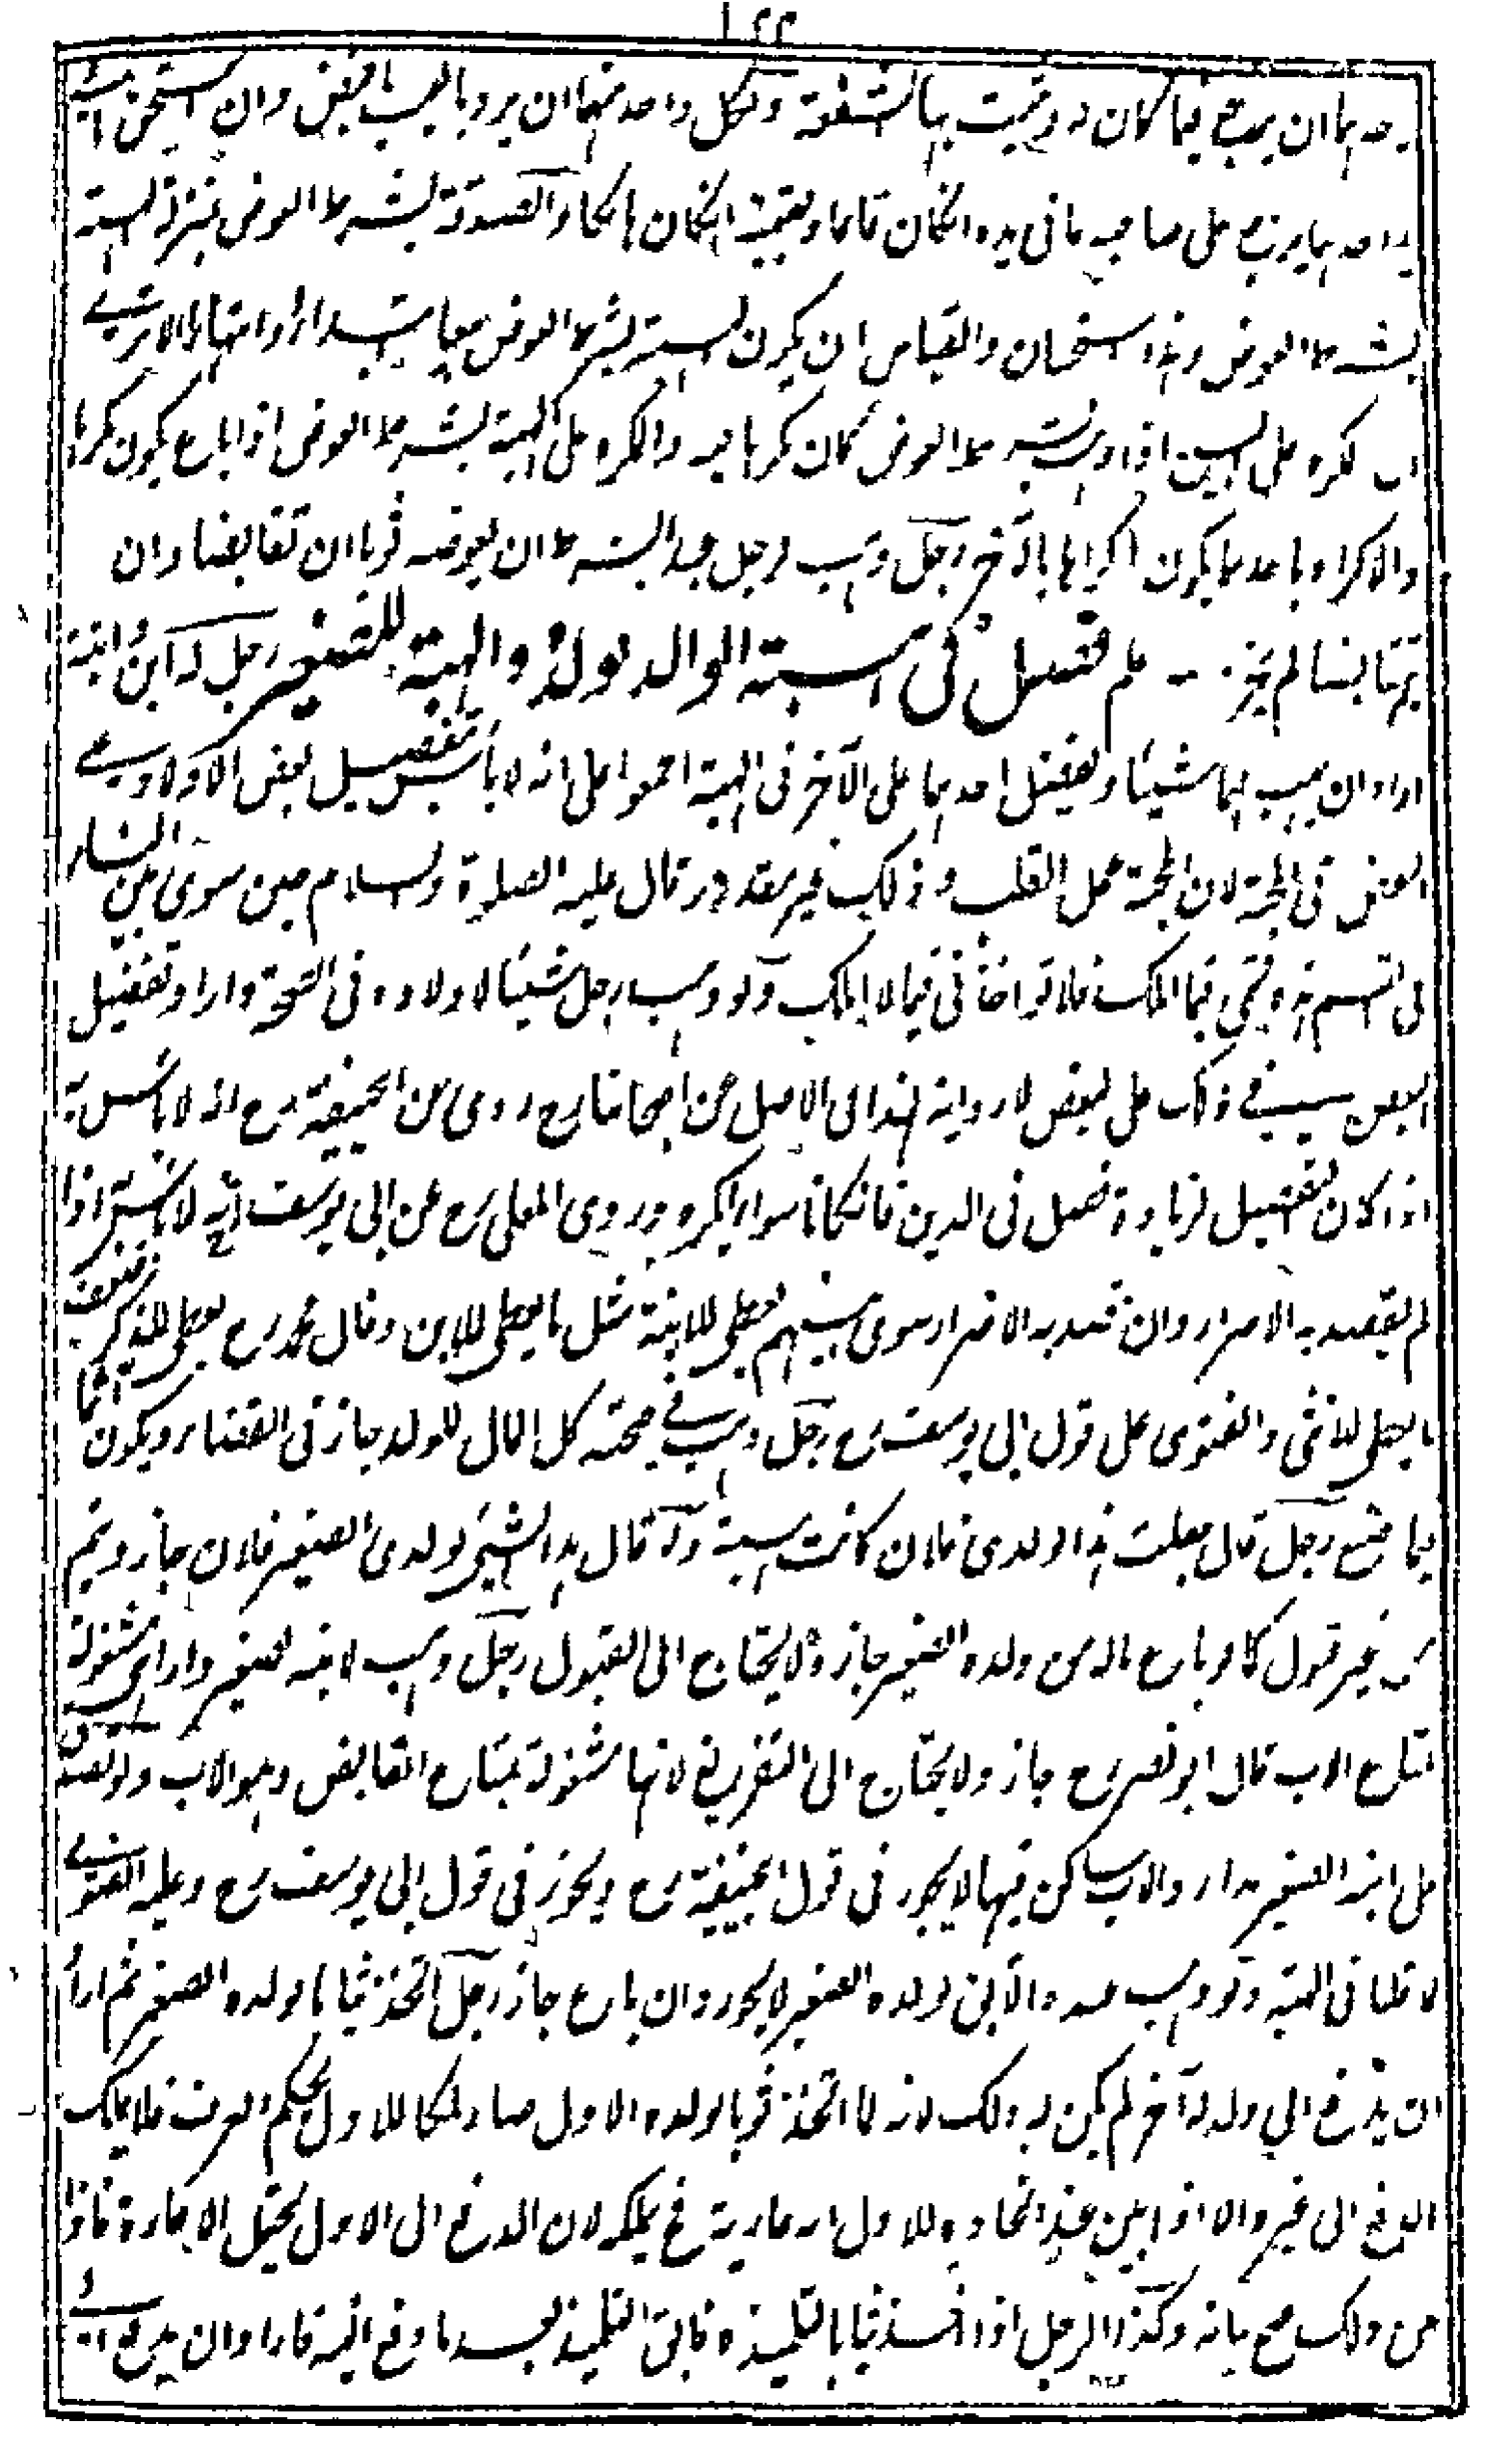 احدهما ان يرجع فيما كان له ويثبت بها الشفعة ولكل واحد منهما ان يرد بالعيب ما قبض وان استحق ما في
يد احدهما يرجع على صاحبه بما في يده ان كان قائما وبقيمته ان كان هالكا والصدقة بشرط العوض بمنزلة الهبة
بشرط العوض وهذا استحسان والقياس ان يكون الهبة بشرط العوض بيعا ابتداء وانتهاء الا يرى
ان المكره على البيع اذا وهب بشرط العوض كان مكرها فيه والمكره على الهبة بشرط العوض اذا باع يكون مكرها
والاكراه باحدهما يكون اكراها بالآخر رجل وهب لرجل عبدا بشرط ان يعوضه ثوبا ان تقابضا وان
لم يتقابضا لم يجز فصل في هبة الوالد لولده والهبة للصغير رجل له ابن وابنة
اراد ان يهب لهما شيئا ويفضل احدهما على الآخر في الهبة اجمعوا على انه لا بأس بتفضيل بعض الاولاد على
البعض في المحبة لان المحبة عمل القلب وذلك غير مقدور قال عليه الصلوة والسلام حين سوى بين النساء
في القسم هذه قسمتي فيما املك فلا تؤاخذني فيما لا املك ولو وهب رجل شيئا لاولاده في الصحة واراد تفضيل
البعض في ذلك على البعض لا رواية لهذا في الاصل عن اصحابنا رح وروي عن ابي حنيفة رح انه لا بأس به
اذا كان التفضيل لزيادة فضل في الدين فان كانا سواء يكره وروى المعلى رح عن ابي يوسف رح انه لا بأس به اذا
لم يقصد به الاضرار وان قصد به الاضرار سوى بينهم يعطي للابنة مثل ما يعطي للابن وقال محمد رح يعطي للذكر ضعف
ما يعطي للانثى والفتوى على قول ابي يوسف رح رجل وهب في صحته كل المال للولد جاز في القضاء ويكون آثما
فيما صنع رجل قال جعلت هذا لولدي فلان كانت هبة ولو قال هذا الشيء لولدي الصغير فلان جاز ويتم
من غير قبول كما لو باع ماله من ولده الصغير جاز ولا يحتاج الى القبول رجل وهب لابنه الصغير دارا هي مشغولة
بمتاع الاب قال ابو نصر رح جاز ولا يحتاج الى التفريغ لانها مشغولة بمتاع القابض وهو الاب ولو تصدق
على ابنه الصغير بدار والاب ساكن فيها لا يجوز في قول ابي حنيفة رح ويجوز في قول ابي يوسف رح وعليه الفتوى
كما قلنا في الهبة ولو وهب عبده الآبق لولده الصغير لا يجوز وان باع جاز رجل اتخذ ثيابا لولده الصغير ثم اراد
ان يدفع الى ولد له آخر لم يكن له ذلك لانه لما اتخذ ثوبا لولده الاول صار ملكا للاول بحكم العرف فلا يملك
الدفع الى غيره الا اذا بين عند اتخاذه للاول انه عارية فح يملكه لان الدفع الى الاول يحتمل الاعارة فاذا
بين ذلك صح بيانه وكذا الرجل اذا اتخذ ثيابا لتلميذه فابق التلميذ بعد ما دفع اليه فاراد ان يدفع الى